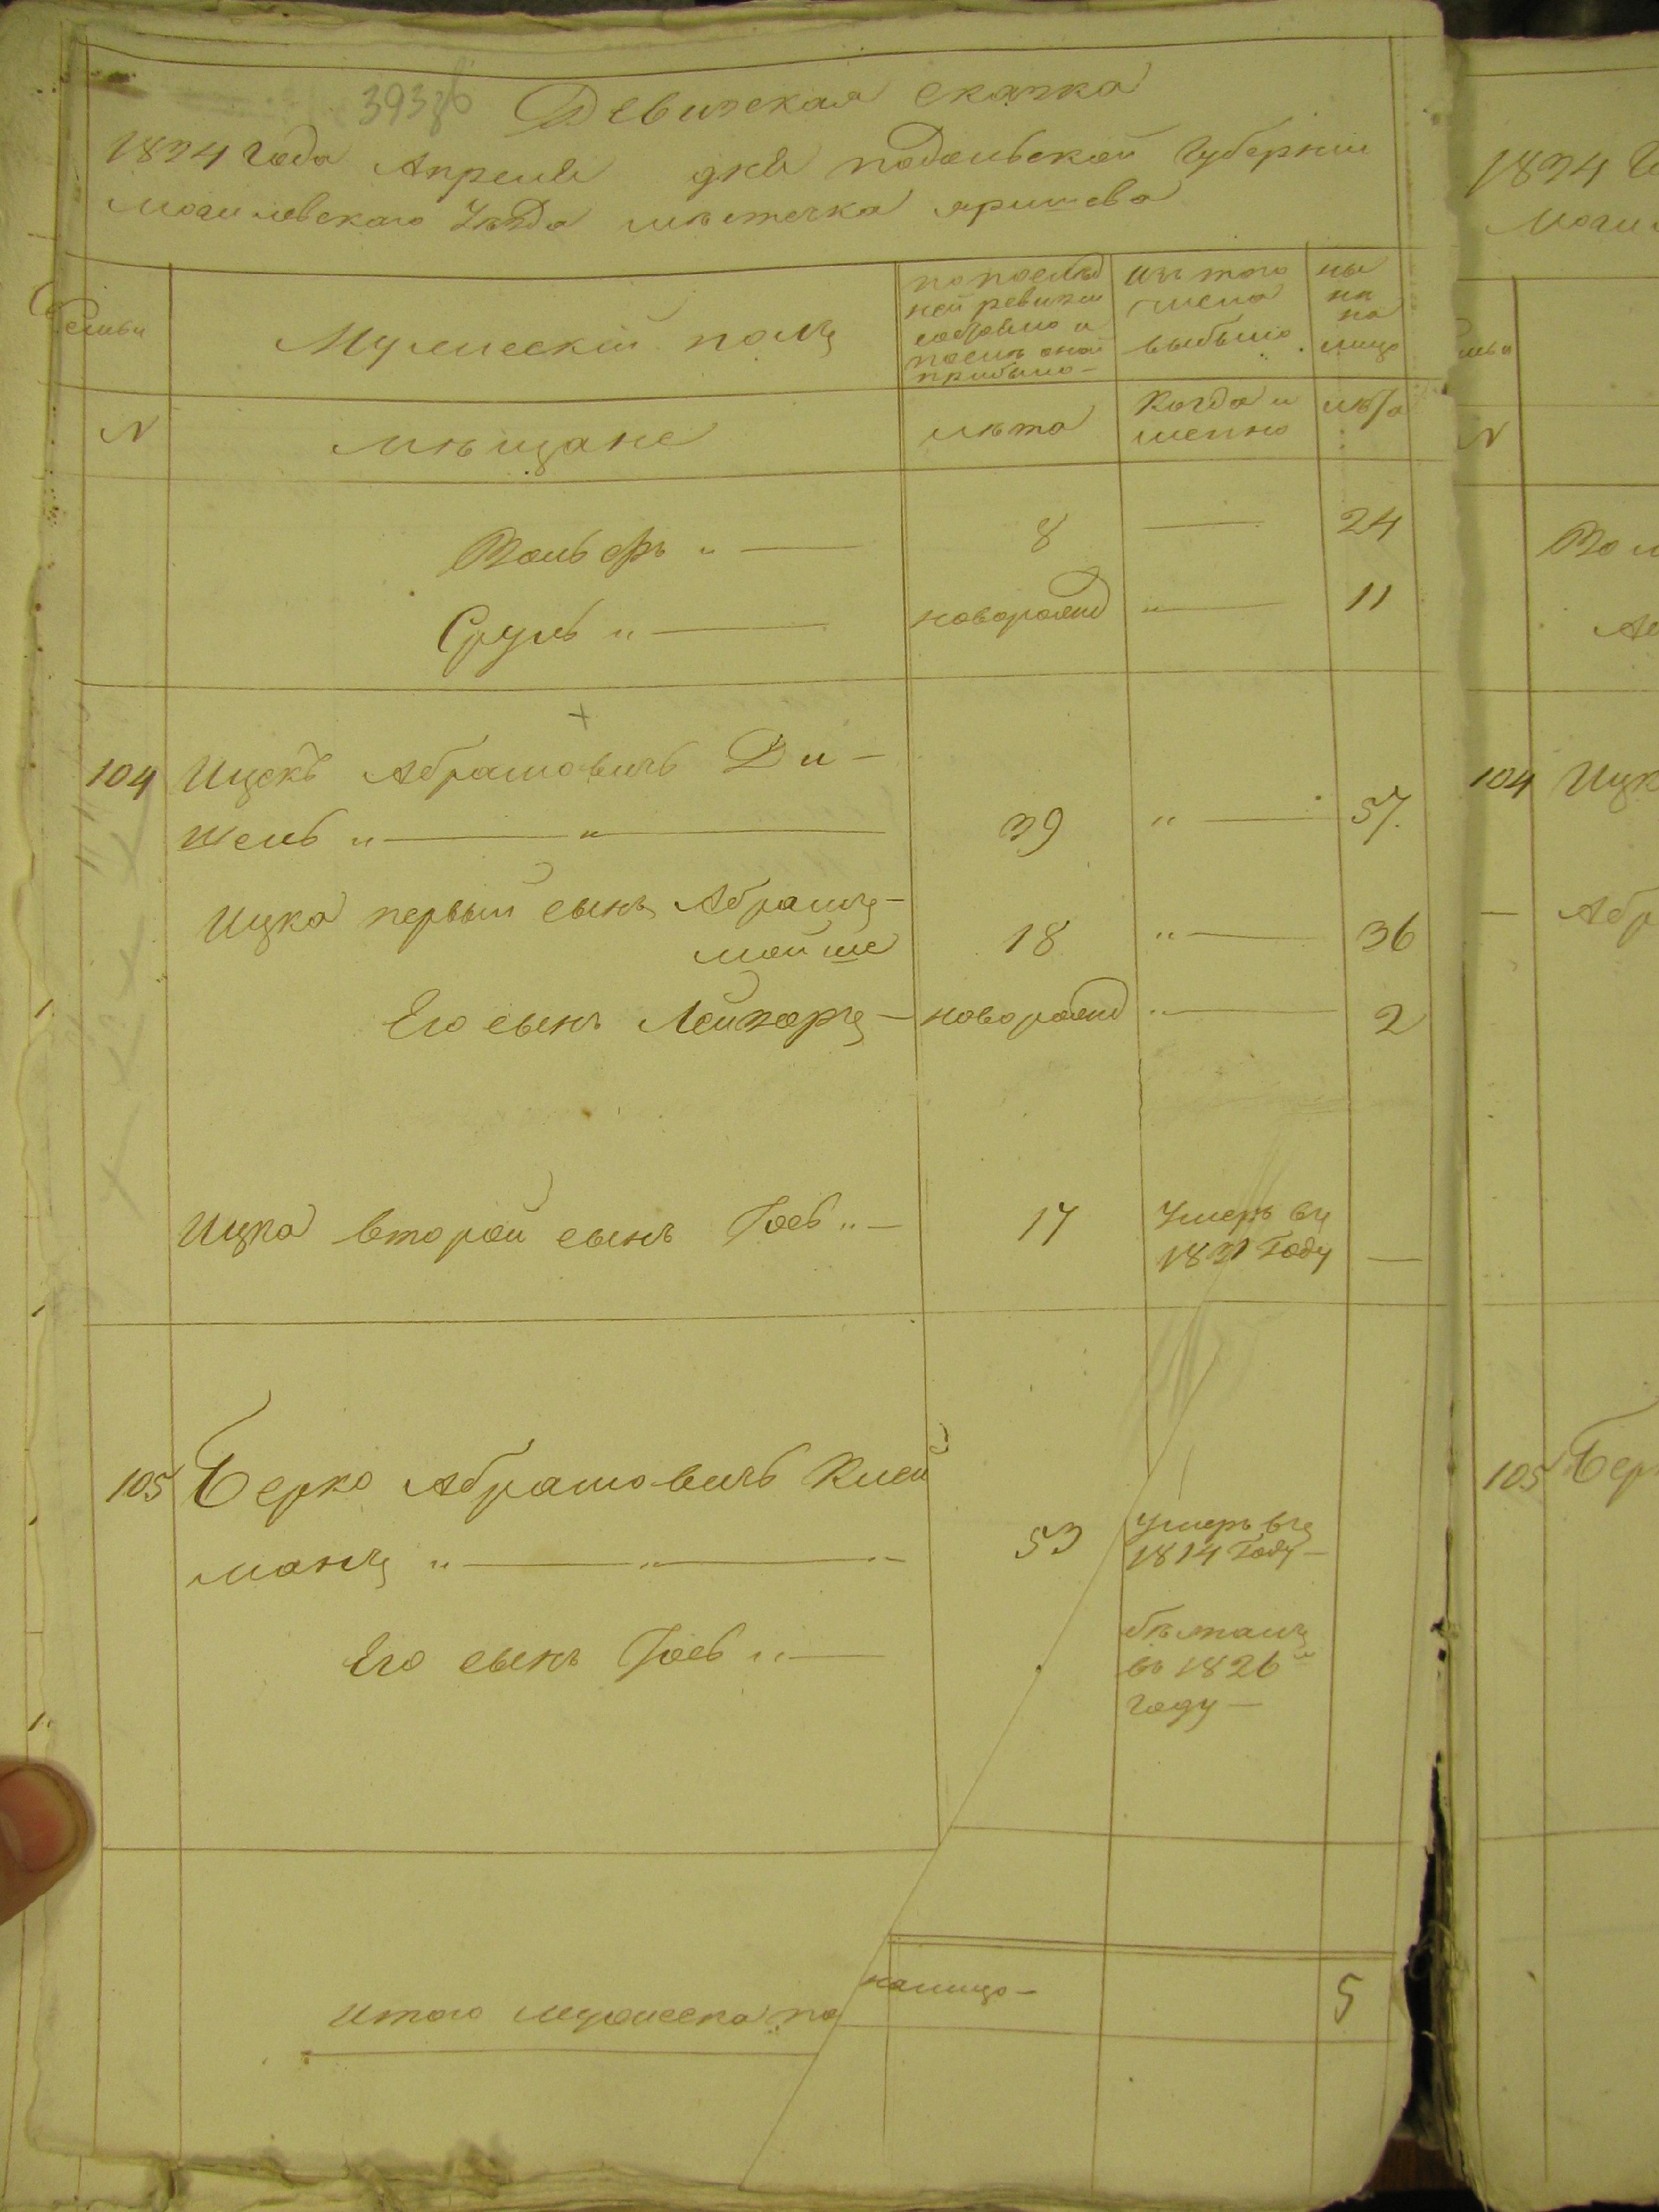 393 об
Ревизская сказка
1834 года Апреля дня подольской Губернии
могилевского Уезда местечка яришева
Семьи
Мужеский полъ
по послед
ней ревизии
состояло и
после оной
прибыло —
Изъ того
числа
выбыло
ны
не
на
лицо
N
мещане
лета
Когда и
именно
лета
Вольфъ " — 8 — 24
Сруль " — новорожд " — 11
104 Ицекъ Абрамовичъ Ди —
шель " — " — 39 " — 57.
Ицка первый сынъ Абрамъ —
мойше 18 " — 36
Его сынъ Лейзоръ — новорожд " — 2
Ицка второй сынъ Іось " — 17 Умеръ въ
1831 Году —
105 Берко Абрамовичъ Клей
манъ " — " — " 53 умеръ въ
1814 Году —
Его сынъ Іось " —
бежалъ
въ 1826 м
году —
Итого мужеска по
налицо — 5
1834 Г
Моги
мьи
N
Вол
104 Ицк
— Абр
105 Бер